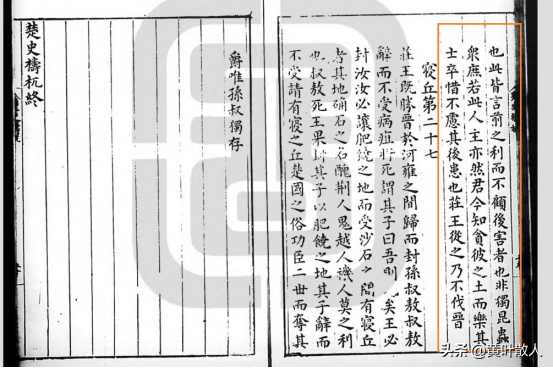 也此皆言前之利而不顧後害者也非獨昆蟲
衆庶若此人主亦然君今知貪彼之土而樂其
士卒惜不慮其後患也莊王從之乃不伐晉
寑丘第二十七
莊王既勝晉於河雍之間歸而封孫叔敖叔敖
辭而不受病疽將死謂其子曰吾則矣王必
封汝汝必讓肥饒之地而受沙石之間有寑丘
者其地确石之名醜荆人鬼越人禨人莫之利
也叔敖死王果封其子以肥饒之地其子辭而
不受請有寑之丘楚國之俗功臣二世而奪其
爵唯孫叔獨存
楚史檮杌終
头条 @黄叶散人